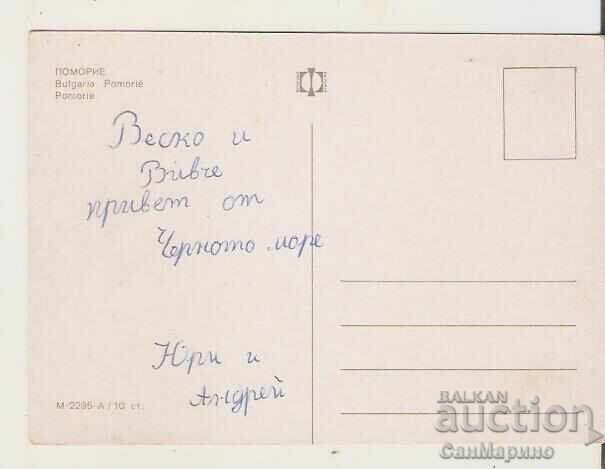 ПОМОРИЕ
Bulgaria Pomorié
Pomorie
Веско и
Вивче
привет от
Черното море
Юри и
Андрей
М-2295-А / 10 ст.
BALKAN
auction
СанМарино